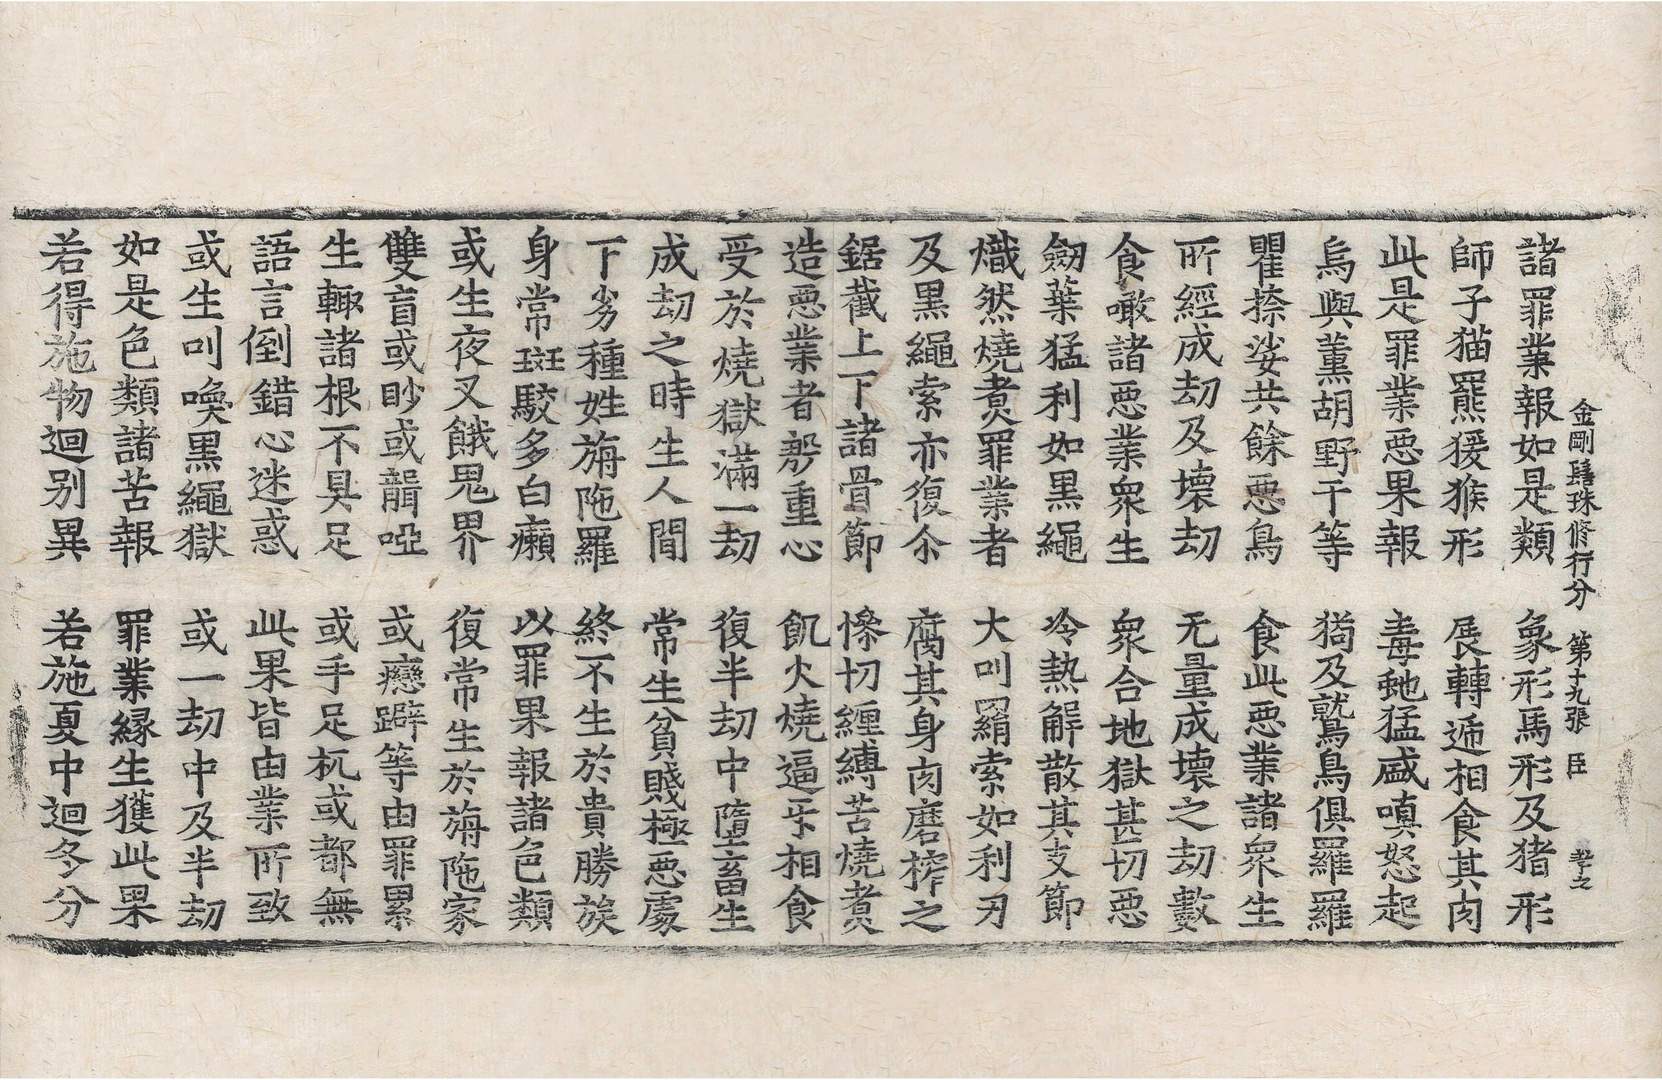 金剛鬘珠修行分 第十九張 臣
諸罪業報如是類 象形馬形及猪形
師子猫羆猨猴形 展轉逓相食其肉
此是罪業惡果報 毒虵猛盛嗔怒起
烏與薫胡野干等 猗及鷲鳥俱羅羅
瞿捺娑共餘惡鳥 食此惡業諸衆生
所經成劫及壊劫 无量成壊之劫數
食噉諸惡業衆生 衆合地獄甚切惡
劒葉猛利如黒繩 冷熱解散其支節
熾然燒煑罪業者 大叫羂索如利刃
及黒繩索亦復尒 腐其身肉磨榨之
鋸截上下諸骨節 慘切纏縛苦燒煑
造惡業者努重心 飢火燒逼㸦相食
受於燒獄滿一劫 復半劫中墮畜生
成劫之時生人間 常生貧賤極惡處
下劣種姓旃陁羅 終不生於貴勝族
身常斑駮多白癩 以罪果報諸色類
或生夜叉餓鬼界 復常生於旃陁家
雙盲或眇或聾啞 或癴躃等由罪累
生輙諸根不具足 或手足杌或都無
語言倒錯心迷惑 此果皆由業所致
或生叫喚黒繩獄 或一劫中及半劫
如是色類諸苦報 罪業緣生獲此果
若得施物迴别異 若施夏中迴冬分